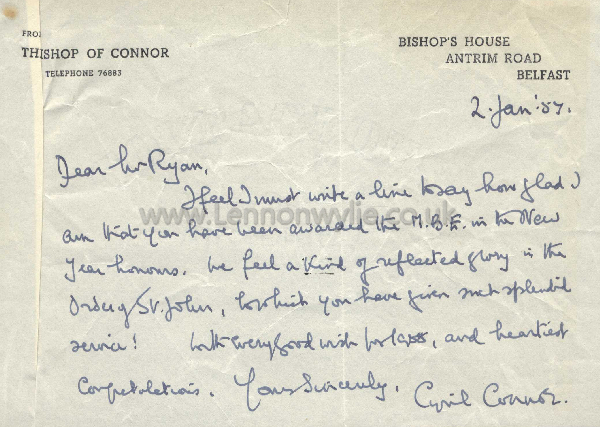 FRO
THISHOP OF CONNOR
TELEPHONE 76883
BISHOP'S HOUSE
ANTRIM ROAD
BELFAST
2. Jan '57.
Dear Mr Ryan,
I feel I must write a line to say how glad I
am that you have been awarded the M.B.E. in the New
Year honours. We feel a kind of reflected glory in the
Order of St. John, to which you have given such splendid
service! With every good wish for 1957, and heartiest
Congratulations. Yours Sincerely,
Cyril Connor.
www.Lennonwylie.co.uk